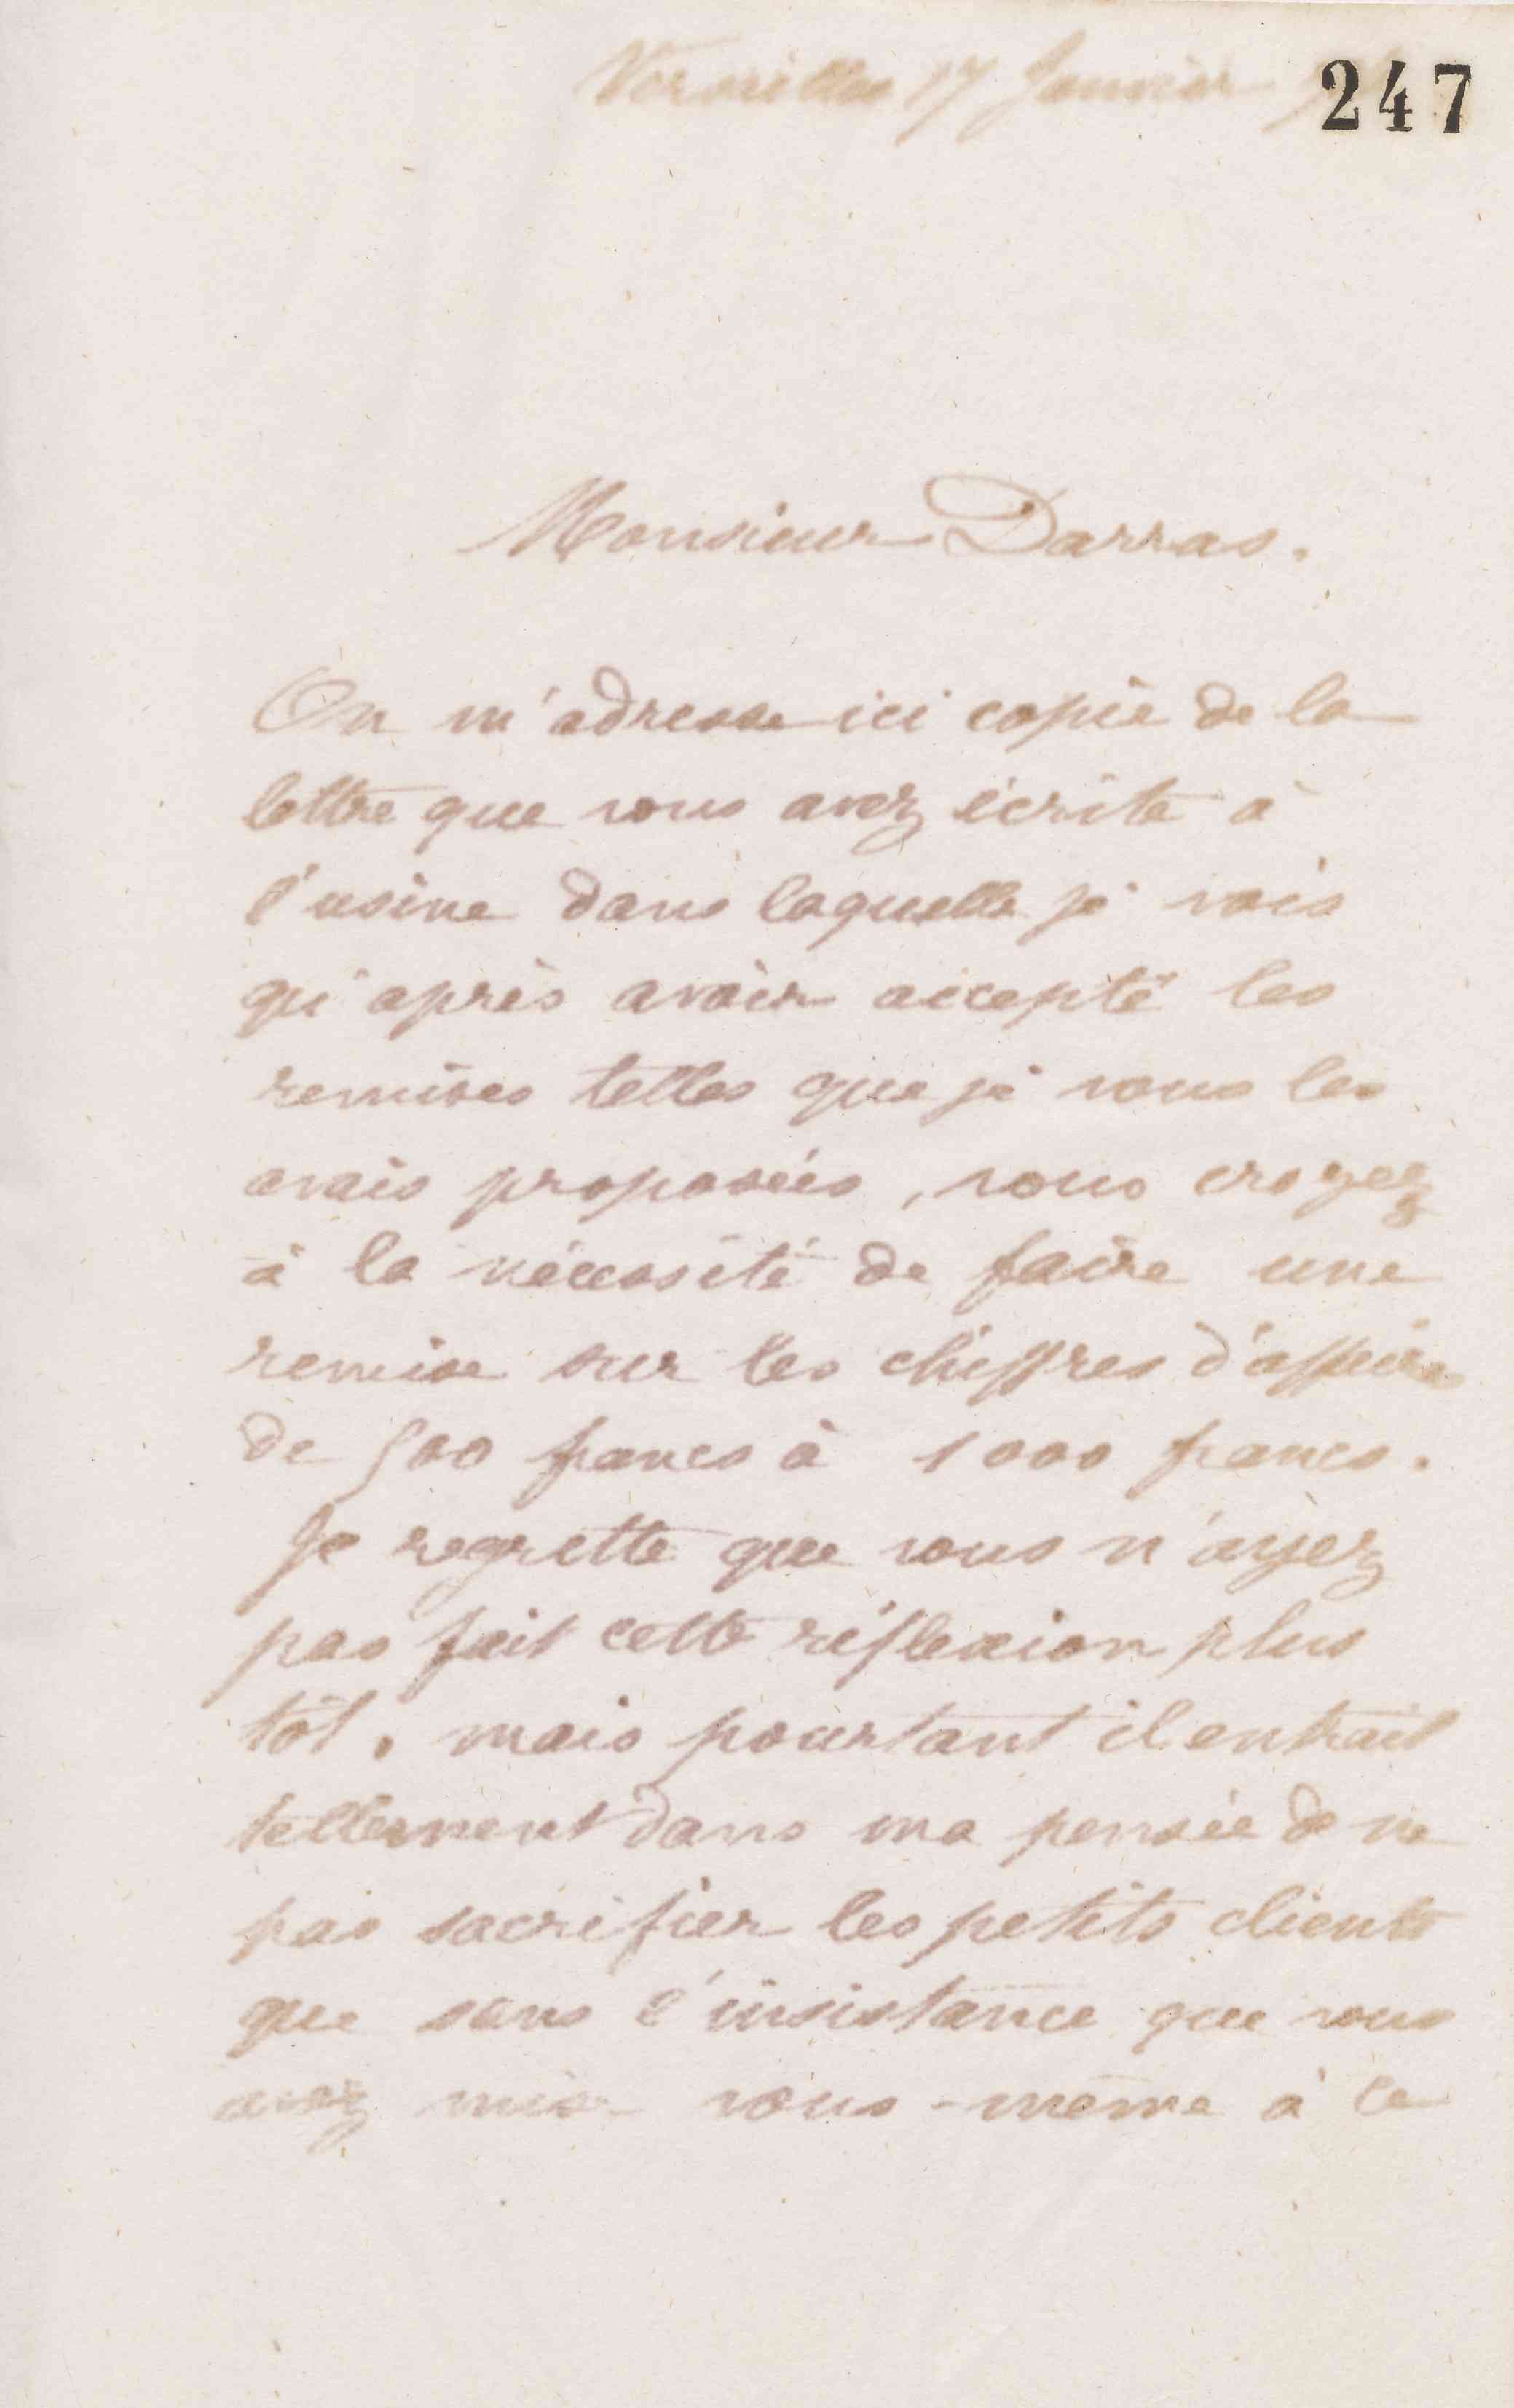 Versailles 17 Janvier
247
Monsieur Darras.
On m'adresse ici copie de la
lettre que vous avez écrite à
l'usine dans laquelle je vois
qu'après avoir accepté les
remises telles que je vous les
avais proposées, vous croyez
à la nécessité de faire une
remise sur les chiffres d'affaires
de 500 francs à 1000 francs.
Je regrette que vous n'ayez
pas fait cette réflexion plus
tôt, mais pourtant il entrait
tellement dans ma pensée de ne
pas sacrifier les petits clients
que sans l'insistance que vous
avez mise vous-même à ce